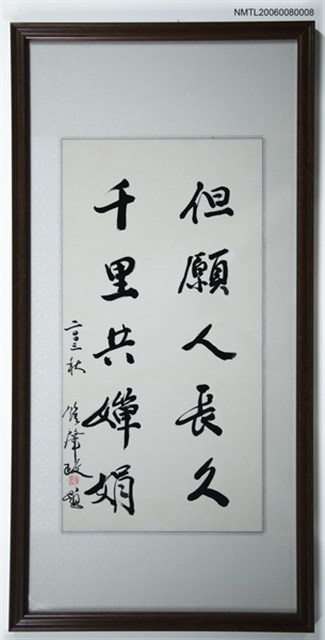 NMTL20060080008
但願人長久
千里共嬋娟
二〇〇三秋 鍾肇政題